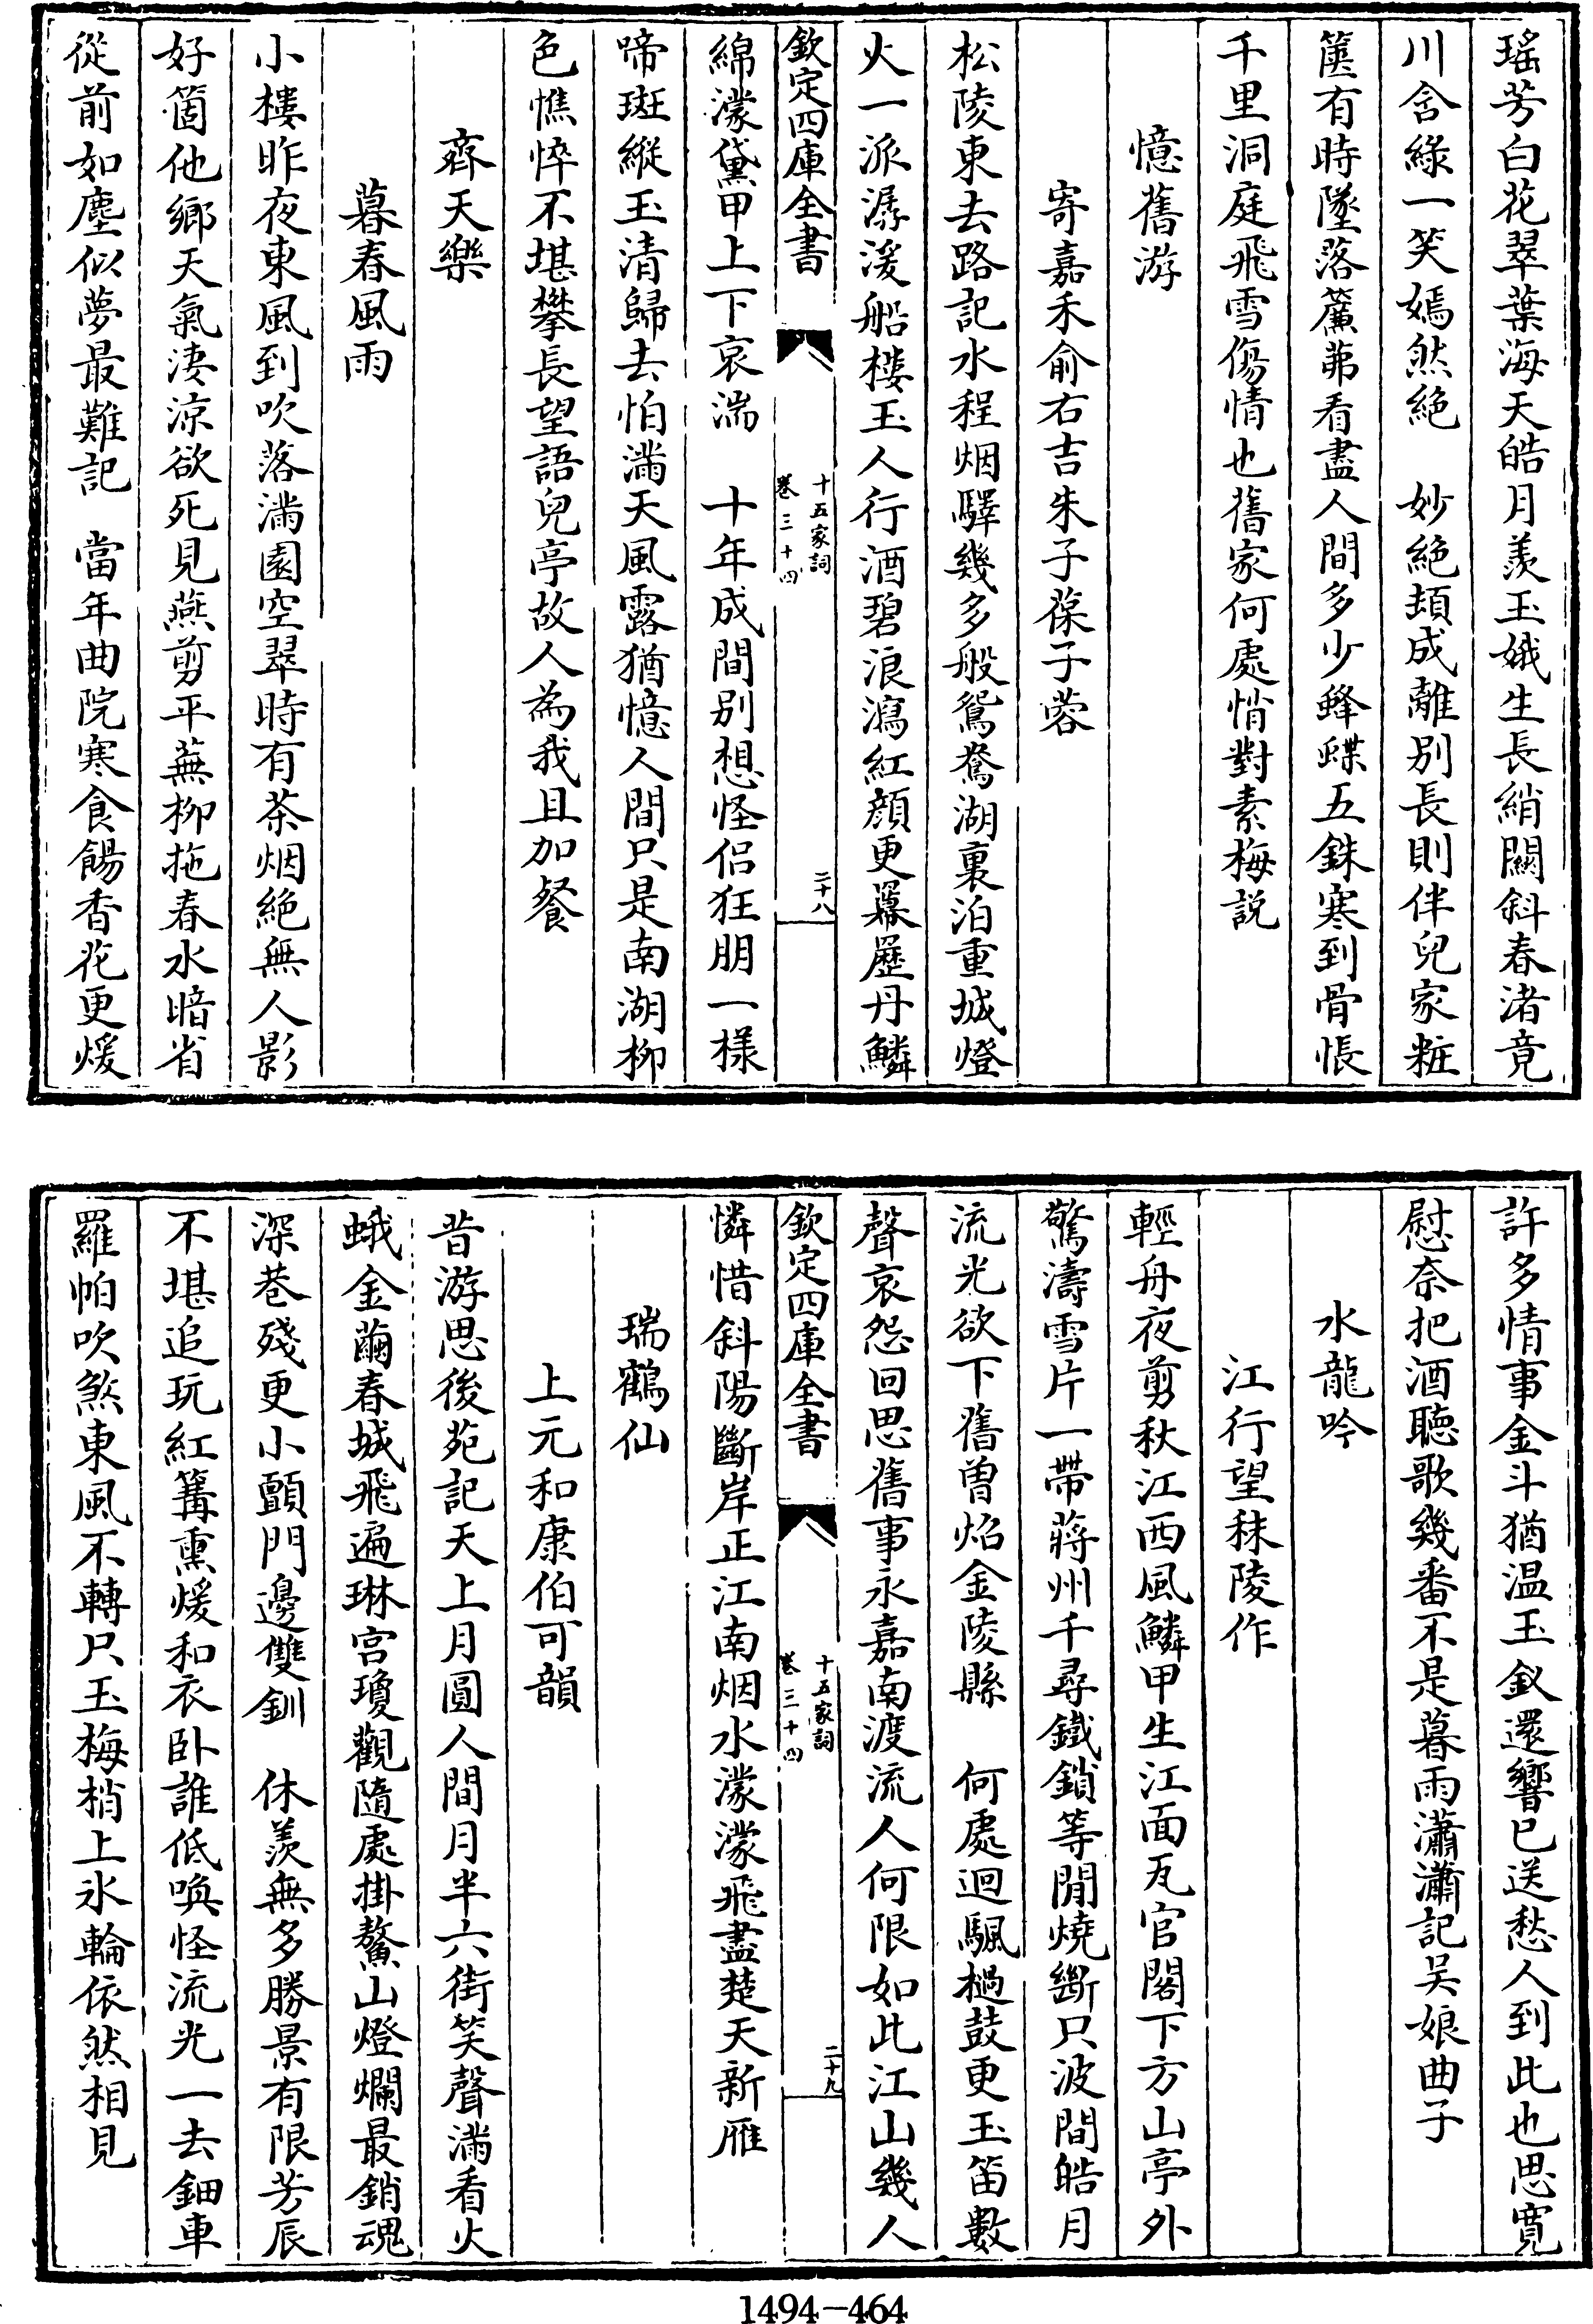 瑤芳白花翠葉海天皓月羨玉娥生長綃闗斜春渚竟
川含緑一笑嫣然絶　妙絶頳成離别長則伴兒家粧
篋有時墜落簾苐看盡人間多少蜂蝶五銖寒到骨悵
千里洞庭飛雪傷情也舊家何處悄對素梅説
憶舊游
寄嘉禾俞右吉朱子葆子蓉
松陵東去路記水程烟驛幾多般鴛鴦湖裏泊重城燈
火一派潺湲船樓玉人行酒碧浪瀉紅顔更羃歴丹鱗
欽定四庫全書
十五家詞
卷三十四
二十八
綿濛黛甲上下哀湍　十年成間别想怪侣狂朋一様
啼斑縱玉清歸去怕滿天風露猶憶人間只是南湖柳
色憔悴不堪攀長望語兒亭故人為我且加餐
齊天樂
暮春風雨
小樓昨夜東風到吹落滿園空翠時有茶烟絶無人影
好箇他鄉天氣淒涼欲死見燕剪平蕪柳拖春水暗省
從前如塵似夢最難記　當年曲院寒食餳香花更煖
許多情事金斗猶温玉釵還響已送愁人到此也思寛
慰奈把酒聽歌幾番不是暮雨瀟瀟記吴娘曲子
水龍吟
江行望秣陵作
輕舟夜剪秋江西風鱗甲生江面瓦官閣下方山亭外
驚濤雪片一帶蔣州千尋鐵鎖等閒燒斷只波間皓月
流光欲下舊曽焰金陵縣　何處迴飊檛鼓更玉笛數
聲哀怨回思舊事永嘉南渡流人何限如此江山幾人
欽定四庫全書
十五家詞
卷三十四
二十九
憐惜斜陽斷岸正江南烟水濛濛飛盡楚天新雁
瑞鶴仙
上元和康伯可韻
昔游思後苑記天上月圓人間月半六街笑聲滿看火
蛾金繭春城飛遍琳宫瓊觀隨處掛鰲山燈爛最銷魂
深巷殘更小顫門邊雙釧　休羨無多勝景有限芳辰
不堪追玩紅篝熏煖和衣卧誰低喚怪流光一去鈿車
羅帕吹煞東風不轉只玉梅梢上氷輪依然相見
1494-464